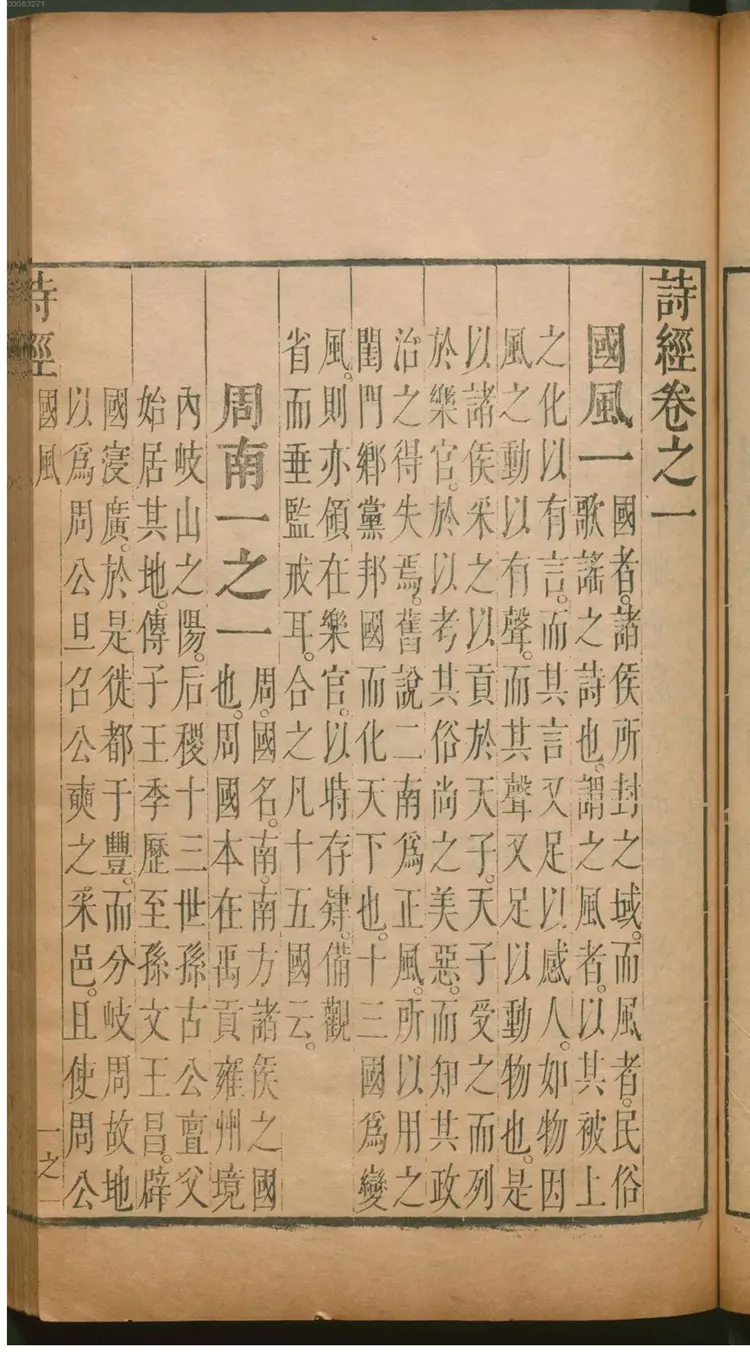 00063271
詩經卷之一
國風一 國者。諸侯所封之域。而風者。民俗
歌謠之詩也。謂之風者。以其被上
之化以有言。而其言又足以感人。如物因
風之動以有聲。而其聲又足以動物也。是
以諸侯采之以貢於天子。天子受之而列
於樂官。於以考其俗尚之美惡。而知其政
治之得失焉。舊說二南爲正風。所以用之
閨門鄉黨邦國而化天下也。十三國爲變
風。則亦領在樂官。以時存肄。備觀
省而垂監戒耳。合之凡十五國云。
周南一之一 周。國名。南。南方諸侯之國
也。周國本在禹貢雍州境
內岐山之陽。后稷十三世孫古公亶父
始居其地。傳子王季歷至孫文王昌。辟
國寖廣。於是徙都于豐。而分岐周故地
以爲周公旦召公奭之采邑。且使周公
詩經 國風 一之一